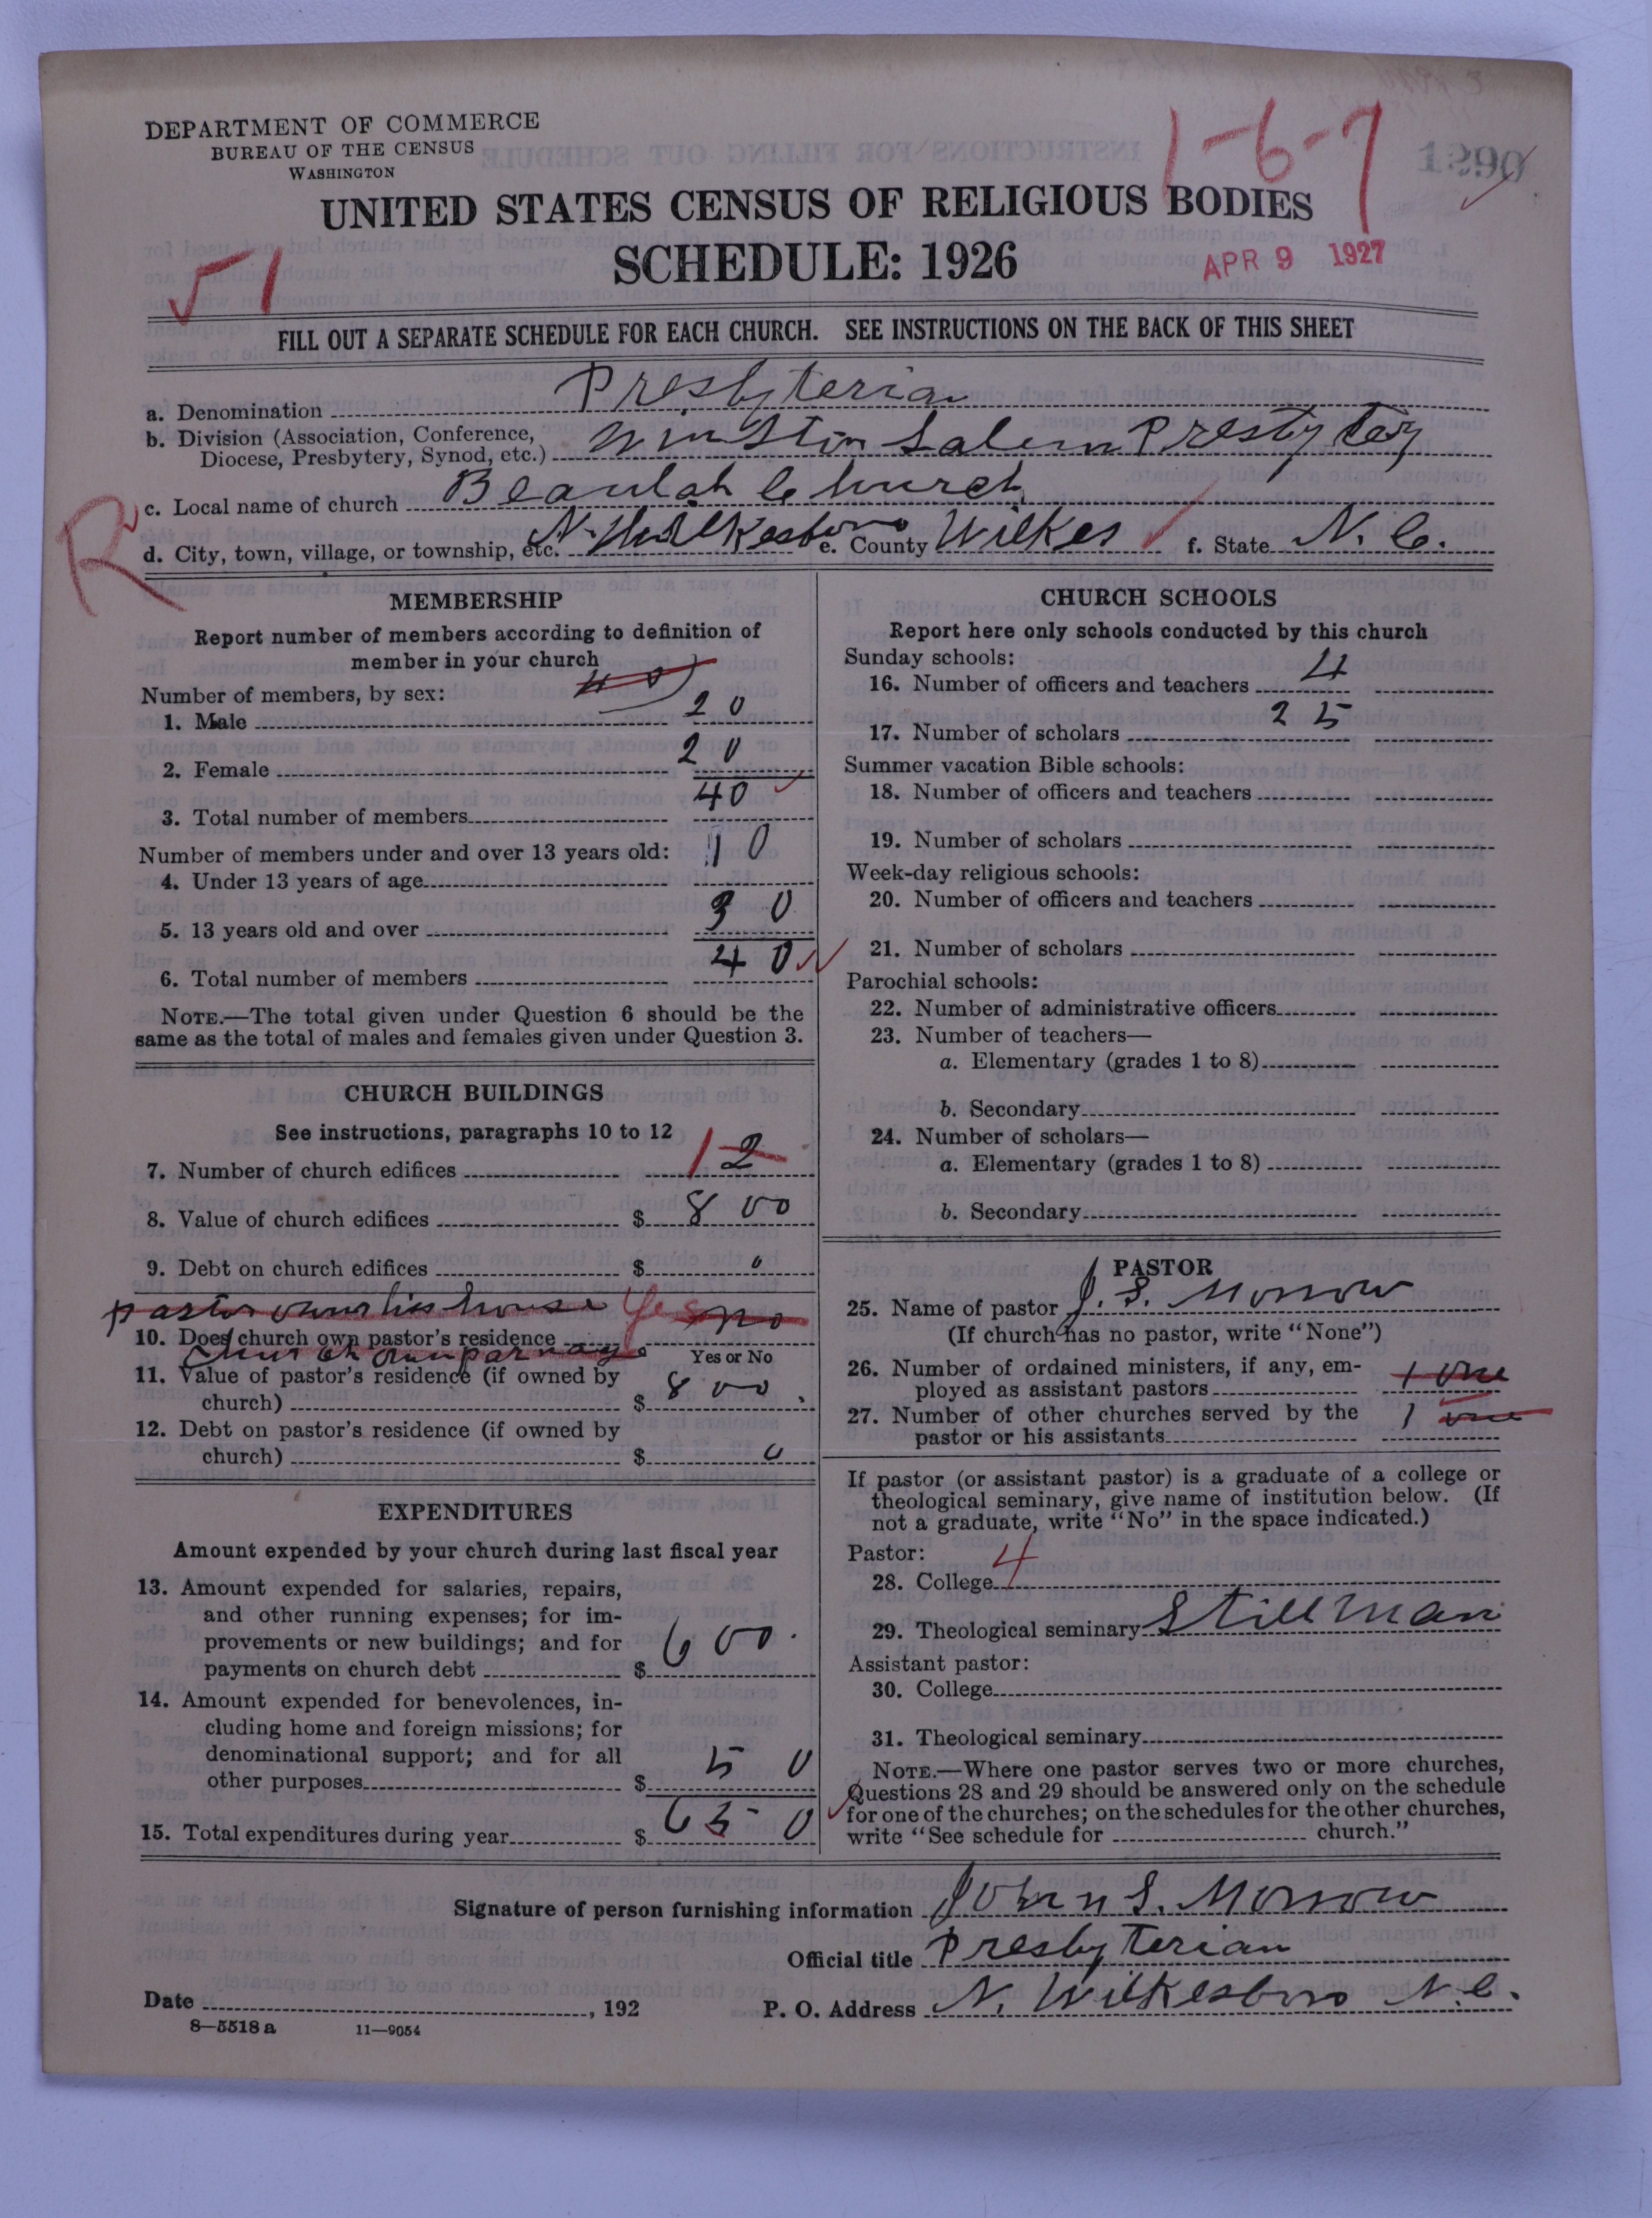 DEPARTMENT OF COMMERCE
BUREAU OF THE CENSUS
WASHINGTON
1-6-7
1290
UNITED STATES CENSUS OF RELIGIOUS BODIES
SCHEDULE: 1926
APR 9 1927
√1
FILL OUT A SEPARATE SCHEDULE FOR EACH CHURCH. SEE INSTRUCTIONS ON THE BACK OF THIS SHEET
a. Denomination Presbyterian
b. Division (Association, Conference, Diocese, Presbytery, Synod, etc.) Winston Salem Presbytery
c. Local name of church Beaulah Church
R
d. City, town, village, or township, etc. N. Wilkesboro e. County Wilkes f. State N. C.
MEMBERSHIP
Report number of members according to definition of
member in your church
40
Number of members, by sex:
1. Male 20
2. Female 20
3. Total number of members 40
Number of members under and over 13 years old:
4. Under 13 years of age 10
5. 13 years old and over 30
6. Total number of members 40
NOTE.—The total given under Question 6 should be the
same as the total of males and females given under Question 3.
CHURCH BUILDINGS
See instructions, paragraphs 10 to 12
7. Number of church edifices 1 2
8. Value of church edifices $ 800
9. Debt on church edifices $ 0
pastor owns his house Yes no
10. Does church own pastor's residence
Yes or No
church own parnage
11. Value of pastor's residence (if owned by
church) $ 800.
12. Debt on pastor's residence (if owned by
church) $ 0
EXPENDITURES
Amount expended by your church during last fiscal year
13. Amount expended for salaries, repairs,
and other running expenses; for im-
provements or new buildings; and for
payments on church debt $ 600.
14. Amount expended for benevolences, in-
cluding home and foreign missions; for
denominational support; and for all
other purposes $ 50
15. Total expenditures during year $ 650
CHURCH SCHOOLS
Report here only schools conducted by this church
Sunday schools:
16. Number of officers and teachers 4
17. Number of scholars 25
Summer vacation Bible schools:
18. Number of officers and teachers
19. Number of scholars
Week-day religious schools:
20. Number of officers and teachers
21. Number of scholars
Parochial schools:
22. Number of administrative officers
23. Number of teachers—
a. Elementary (grades 1 to 8)
b. Secondary
24. Number of scholars—
a. Elementary (grades 1 to 8)
b. Secondary
PASTOR
25. Name of pastor J. S. Morrow
(If church has no pastor, write "None")
26. Number of ordained ministers, if any, em-
ployed as assistant pastors 1 one
27. Number of other churches served by the
pastor or his assistants 1 one
If pastor (or assistant pastor) is a graduate of a college or
theological seminary, give name of institution below. (If
not a graduate, write "No" in the space indicated.)
Pastor: 4
28. College
29. Theological seminary Stillman
Assistant pastor:
30. College
31. Theological seminary
NOTE.—Where one pastor serves two or more churches,
Questions 28 and 29 should be answered only on the schedule
for one of the churches; on the schedules for the other churches,
write "See schedule for church."
Signature of person furnishing information John S. Morrow
Official title Presbyterian
Date , 192
P. O. Address N. Wilkesboro N.C.
8—5518 a 11—9054